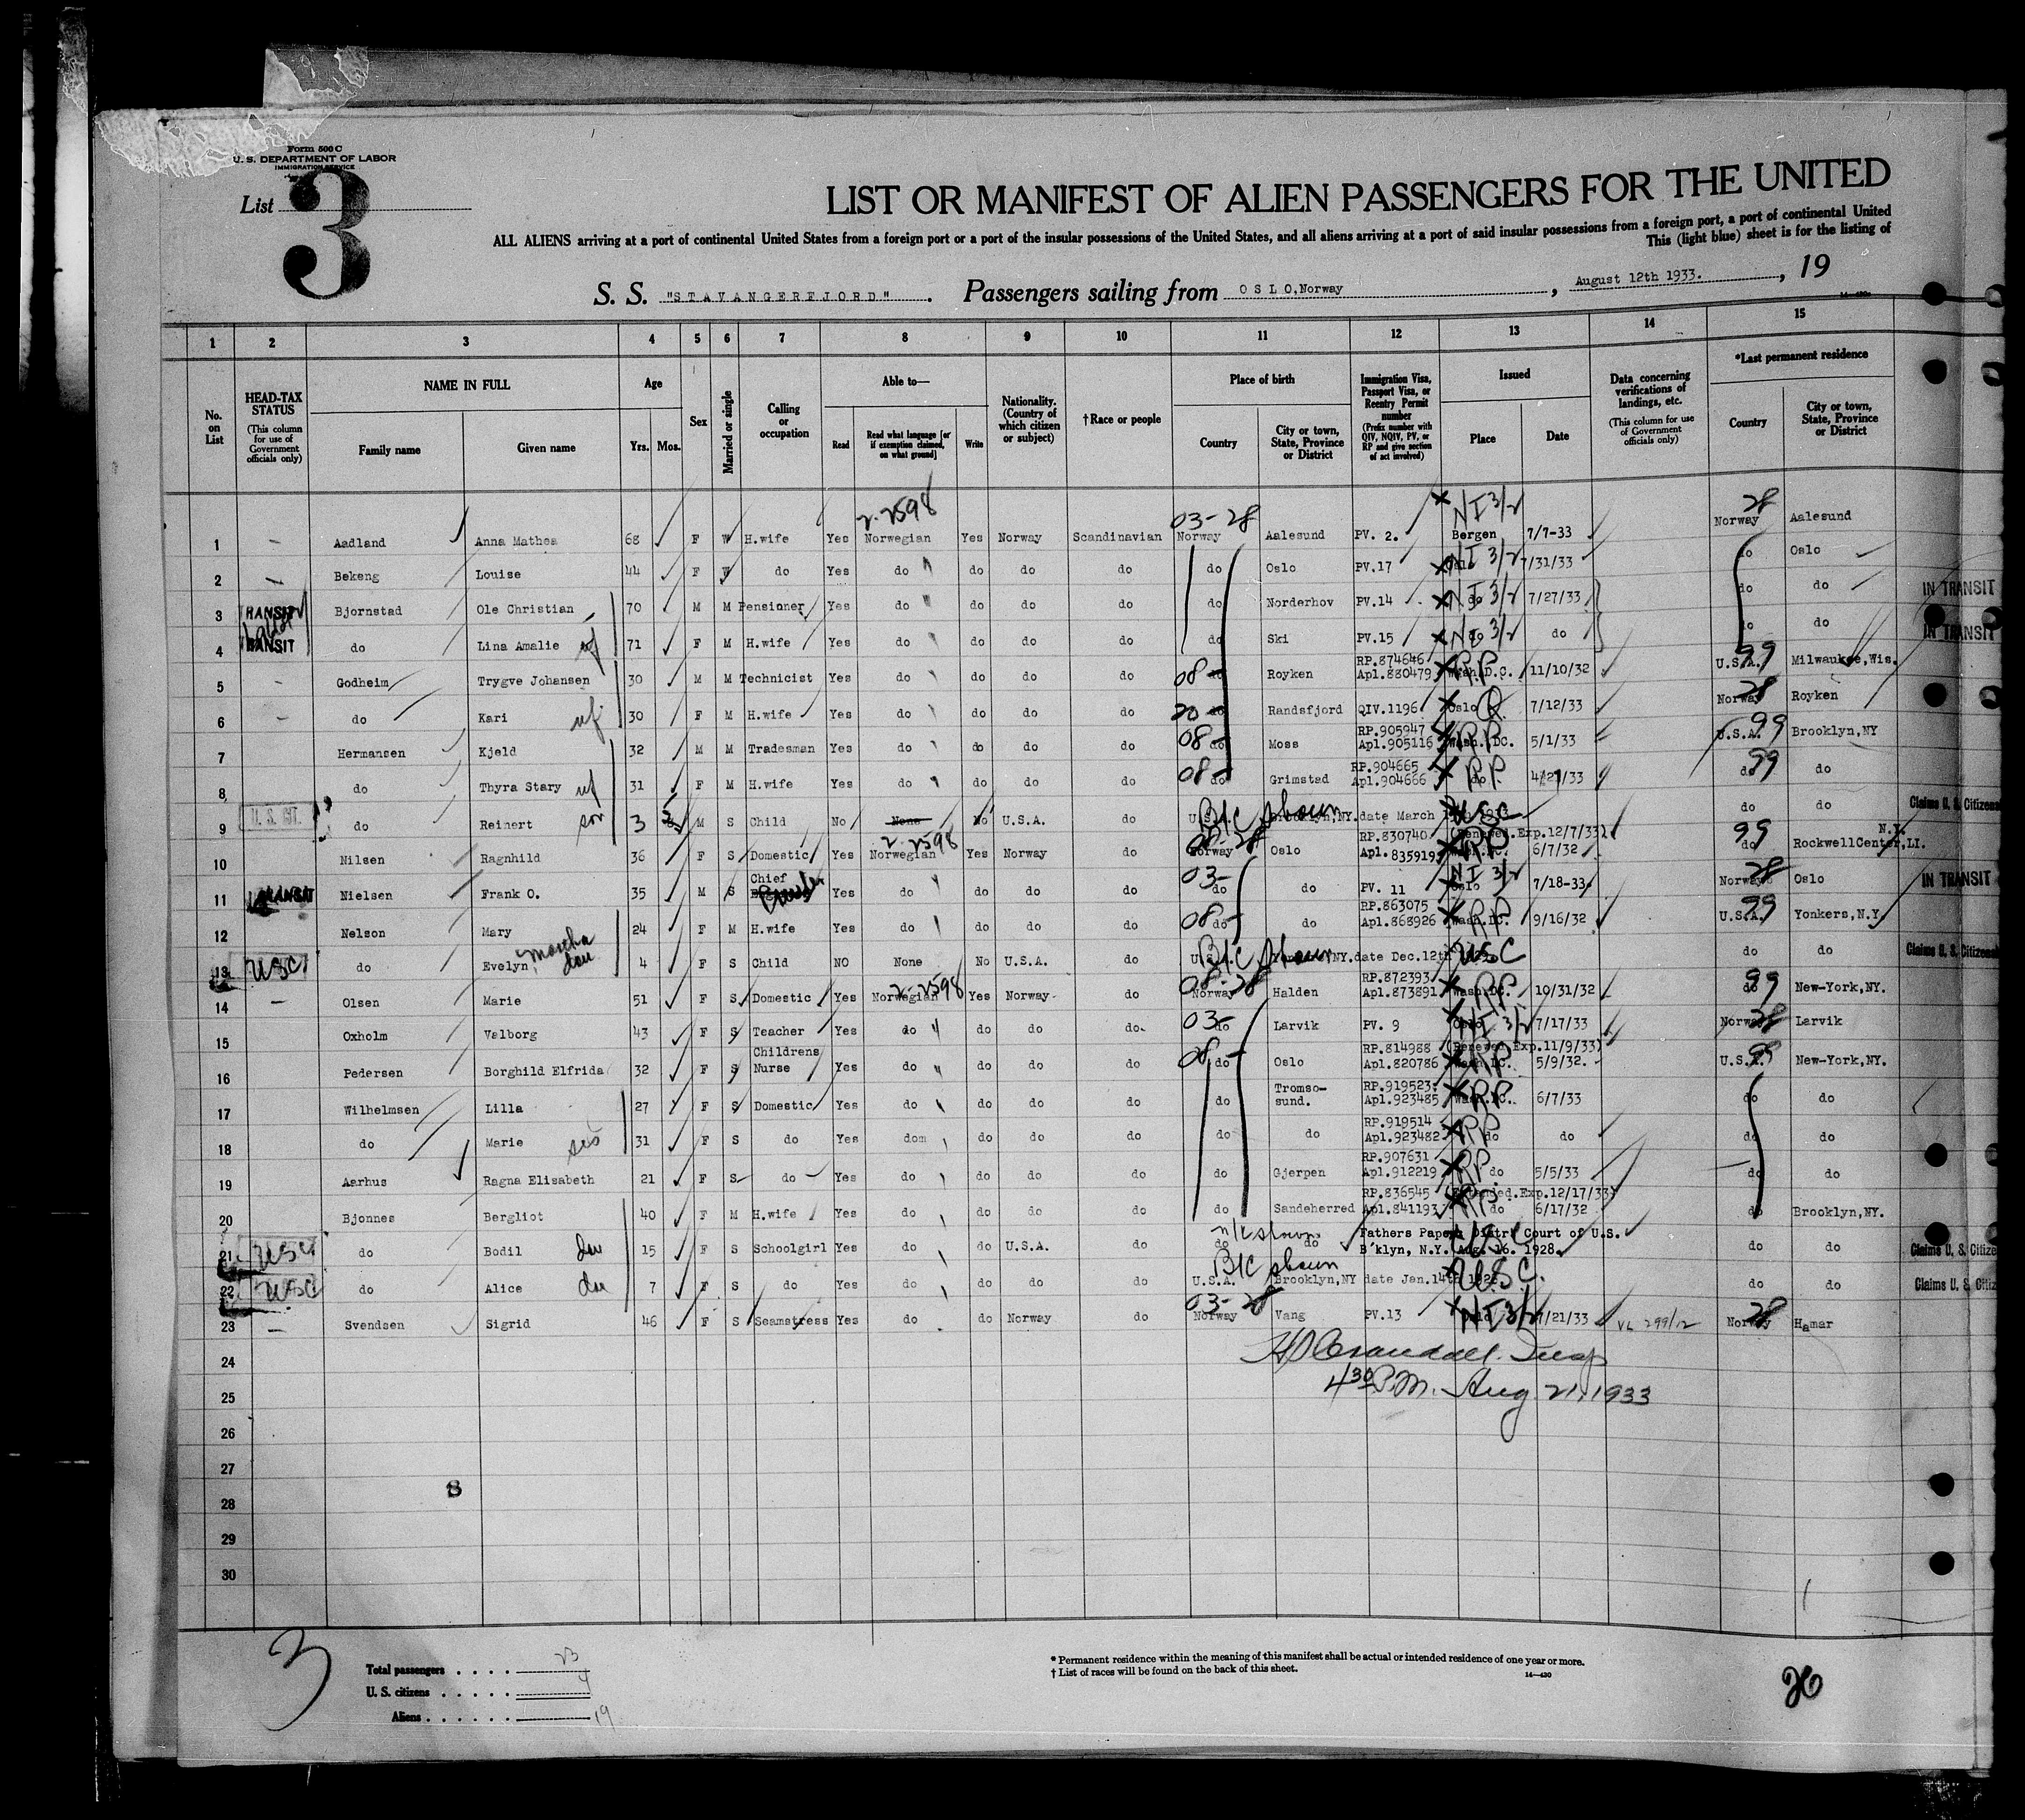 Form 500 C
U. S. DEPARTMENT OF LABOR
IMMIGRATION SERVICE
List 3
LIST OR MANIFEST OF ALIEN PASSENGERS FOR THE UNITED
ALL ALIENS arriving at a port of continental United States from a foreign port or a port of the insular possessions of the United States, and all aliens arriving at a port of said insular possessions from a foreign port, a port of continental United
This (light blue) sheet is for the listing of
S. S. "STAVANGERFJORD". Passengers sailing from OSLO, Norway, August 12th 1933., 19
1 2 3 4 5 6 7 8 9 10 11 12 13 14 15
No. on List
HEAD-TAX STATUS (This column for use of Government officials only)
NAME IN FULL
Family name Given name
Age
Yrs. Mos.
Sex
Married or single
Calling or occupation
Able to—
Read Read what language [or if exemption claimed, on what ground] Write
Nationality. (Country of which citizen or subject)
†Race or people
Place of birth
Country City or town, State, Province or District
Immigration Visa, Passport Visa, or Reentry Permit number (Prefix number with QIV, NQIV, PV, or RP and give section of act involved)
Issued
Place Date
Data concerning verifications of landings, etc. (This column for use of Government officials only)
*Last permanent residence
Country City or town, State, Province or District
2-2598 03-28 NI 3/2 28
1 — Aadland Anna Mathea 68 F W H.wife Yes Norwegian Yes Norway Scandinavian Norway Aalesund PV. 2. Bergen 7/7-33 Norway Aalesund
2 — Bekeng Louise 44 F W do Yes do do do do do Oslo PV.17 NI 3/2 7/31/33 do Oslo
3 TRANSIT Bjornstad Ole Christian 70 M M Pensioner Yes do do do do do Norderhov PV.14 do NI 3/2 7/27/33 do do IN TRANSIT
4 TRANSIT do Lina Amalie wf 71 F M H.wife Yes do do do do do Ski PV.15 do NI 3/2 do do do IN TRANSIT
5 — Godheim Trygve Johansen 30 M M Technicist Yes do do do do 08- do Royken RP.874646 Apl.880479 Wash.D.C. RP 11/10/32 U.S.A. 99 Milwaukee,Wis.
6 — do Kari wf 30 F M H.wife Yes do do do do 20 do Randsfjord QIV.1196 Oslo Q 7/12/33 Norway 28 Royken
7 Hermansen Kjeld 32 M M Tradesman Yes do do do do 08- do Moss RP.905947 Apl.905116 Wash.DC. RP 5/1/33 U.S.A. 99 Brooklyn,NY
8 do Thyra Stary wf 31 F M H.wife Yes do do do do 08- do Grimstad RP.904665 Apl.904666 do RP 4/27/33 do 99 do
9 U.S. CIT. do Reinert son 3 M S Child No None No U.S.A. do B/C shown Brooklyn,NY.date March USC do do Claims U. S. Citizens
10 Nilsen Ragnhild 36 F S Domestic Yes Norwegian 2-2598 Yes Norway do Norway 08-28 Oslo RP.830740 (Renewed.Exp.12/7/33) Apl.835919 RP 6/7/32 do 99 RockwellCenter,LI. N.Y.
11 TRANSIT Nielsen Frank O. 35 M S Chief Yes do do do do 03- do do PV. 11 Oslo NI 3/2 7/18-33 Norway 28 Oslo IN TRANSIT
12 Nelson Mary 24 F M H.wife Yes do do do do 08- do do RP.863075 Apl.868926 Wash.DC. RP 9/16/32 U.S.A. 99 Yonkers,N.Y.
13 USC do Evelyn, Martha dau 4 F S Child NO None No U.S.A. do B/C shown NY.date Dec.12th USC do do Claims U. S. Citizens
14 — Olsen Marie 51 F S Domestic Yes Norwegian 2-2598 Yes Norway do Norway 08-28 Halden RP.872393 Apl.873891 Wash.DC. RP 10/31/32 do 99 New-York,NY.
15 Oxholm Valborg 43 F S Teacher Yes do do do do 03- do Larvik PV. 9 Oslo NI 3/2 7/17/33 Norway 28 Larvik
16 Pedersen Borghild Elfrida 32 F S Childrens Nurse Yes do do do do 08- do Oslo RP.814988 (Renewed.Exp.11/9/33) Apl.820786 Wash.DC. RP 5/9/32. U.S.A. 99 New-York,NY.
17 Wilhelmsen Lilla 27 F S Domestic Yes do do do do do Tromso-sund. RP.919523 Apl.923485 Wash.DC. RP 6/7/33 do do
18 do Marie sis 31 F S do Yes dom do do do do do RP.919514 Apl.923482 do RP do do do
19 Aarhus Ragna Elisabeth 21 F S do Yes do do do do do Gjerpen RP.907631 Apl.912219 do RP 5/5/33 do do
20 Bjonnes Bergliot 40 F M H.wife Yes do do do do do Sandeherred RP.836545 (Extended.Exp.12/17/33) Apl.841193 do RP 6/17/32 do Brooklyn,NY.
21 USC do Bodil dau 15 F S Schoolgirl Yes do do U.S.A. do do n/c shown do Fathers Paper, Distr. Court of U.S. B'klyn, N.Y. Aug. 16. 1928. do do Claims U. S. Citize
22 USC do Alice dau 7 F S do Yes do do do do U.S.A. B/C shown Brooklyn,NY date Jan.14th USC. do do Claims U. S. Citiz
23 — Svendsen Sigrid 46 F S Seamstress Yes do do Norway do Norway 03-28 Vang PV.13 Oslo NI 3/2 7/21/33 VL 299/12 Norway 28 Hamar
24 H D Crandall. Insp
25 4 30 P.M. Aug. 21, 1933
26
27
28 8
29
30
3
Total passengers . . . . 23
U. S. citizens . . . . . 4
Aliens . . . . . . 19
* Permanent residence within the meaning of this manifest shall be actual or intended residence of one year or more.
† List of races will be found on the back of this sheet.
14—430
26